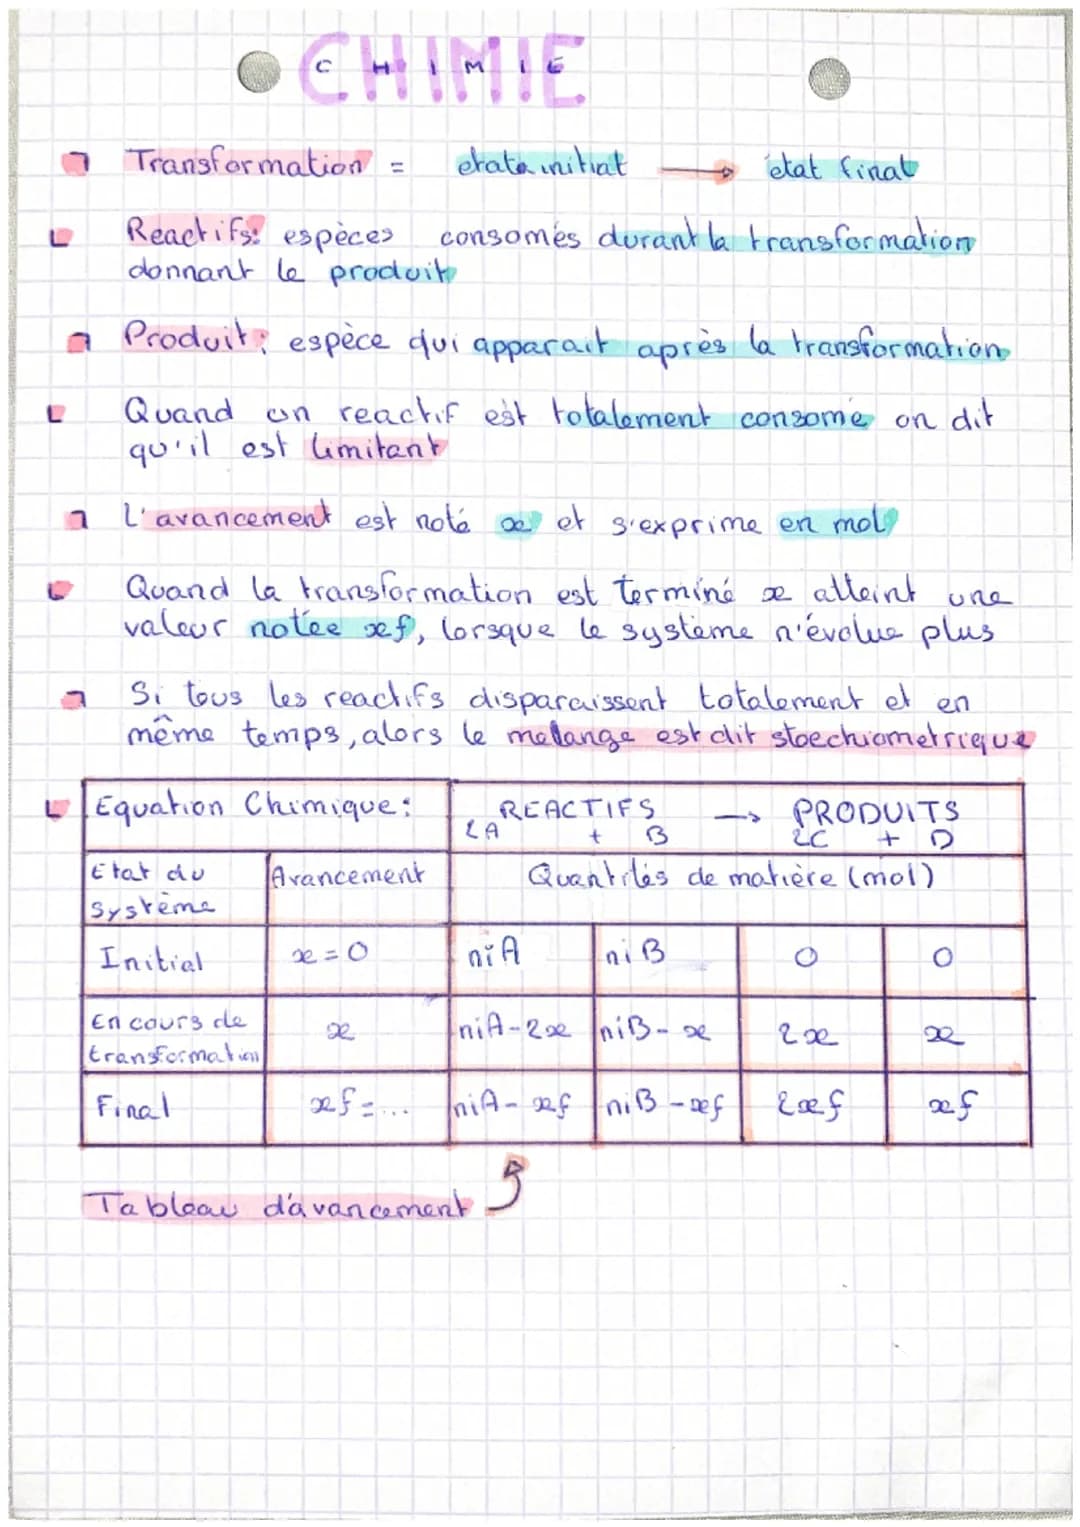 CHIMIE
Transformation = etata initial → état final
Reactifs: espèces consomés durant la transformation
donnant le produit
Produit: espèce qui apparait après la transformation
Quand un reactif est totalement consomé on dit
qu'il est limitant
L'avancement est noté x et s'exprime en mol
Quand la transformation est terminé x atteint une
valeur notée xf, lorsque le système n'évolue plus
Si tous les reactifs disparaissent totalement et en
même temps, alors le melange est dit stoechiometrique
Equation Chimique: REACTIFS → PRODUITS
2A + B 2C + D
Etat du système Avancement Quantités de matière (mol)
Initial x = 0 niA niB 0 0
En cours de transformation x niA-2x niB-x 2x x
Final xf=... niA-xf niB-xf 2xf xf
Tableau d'avancement